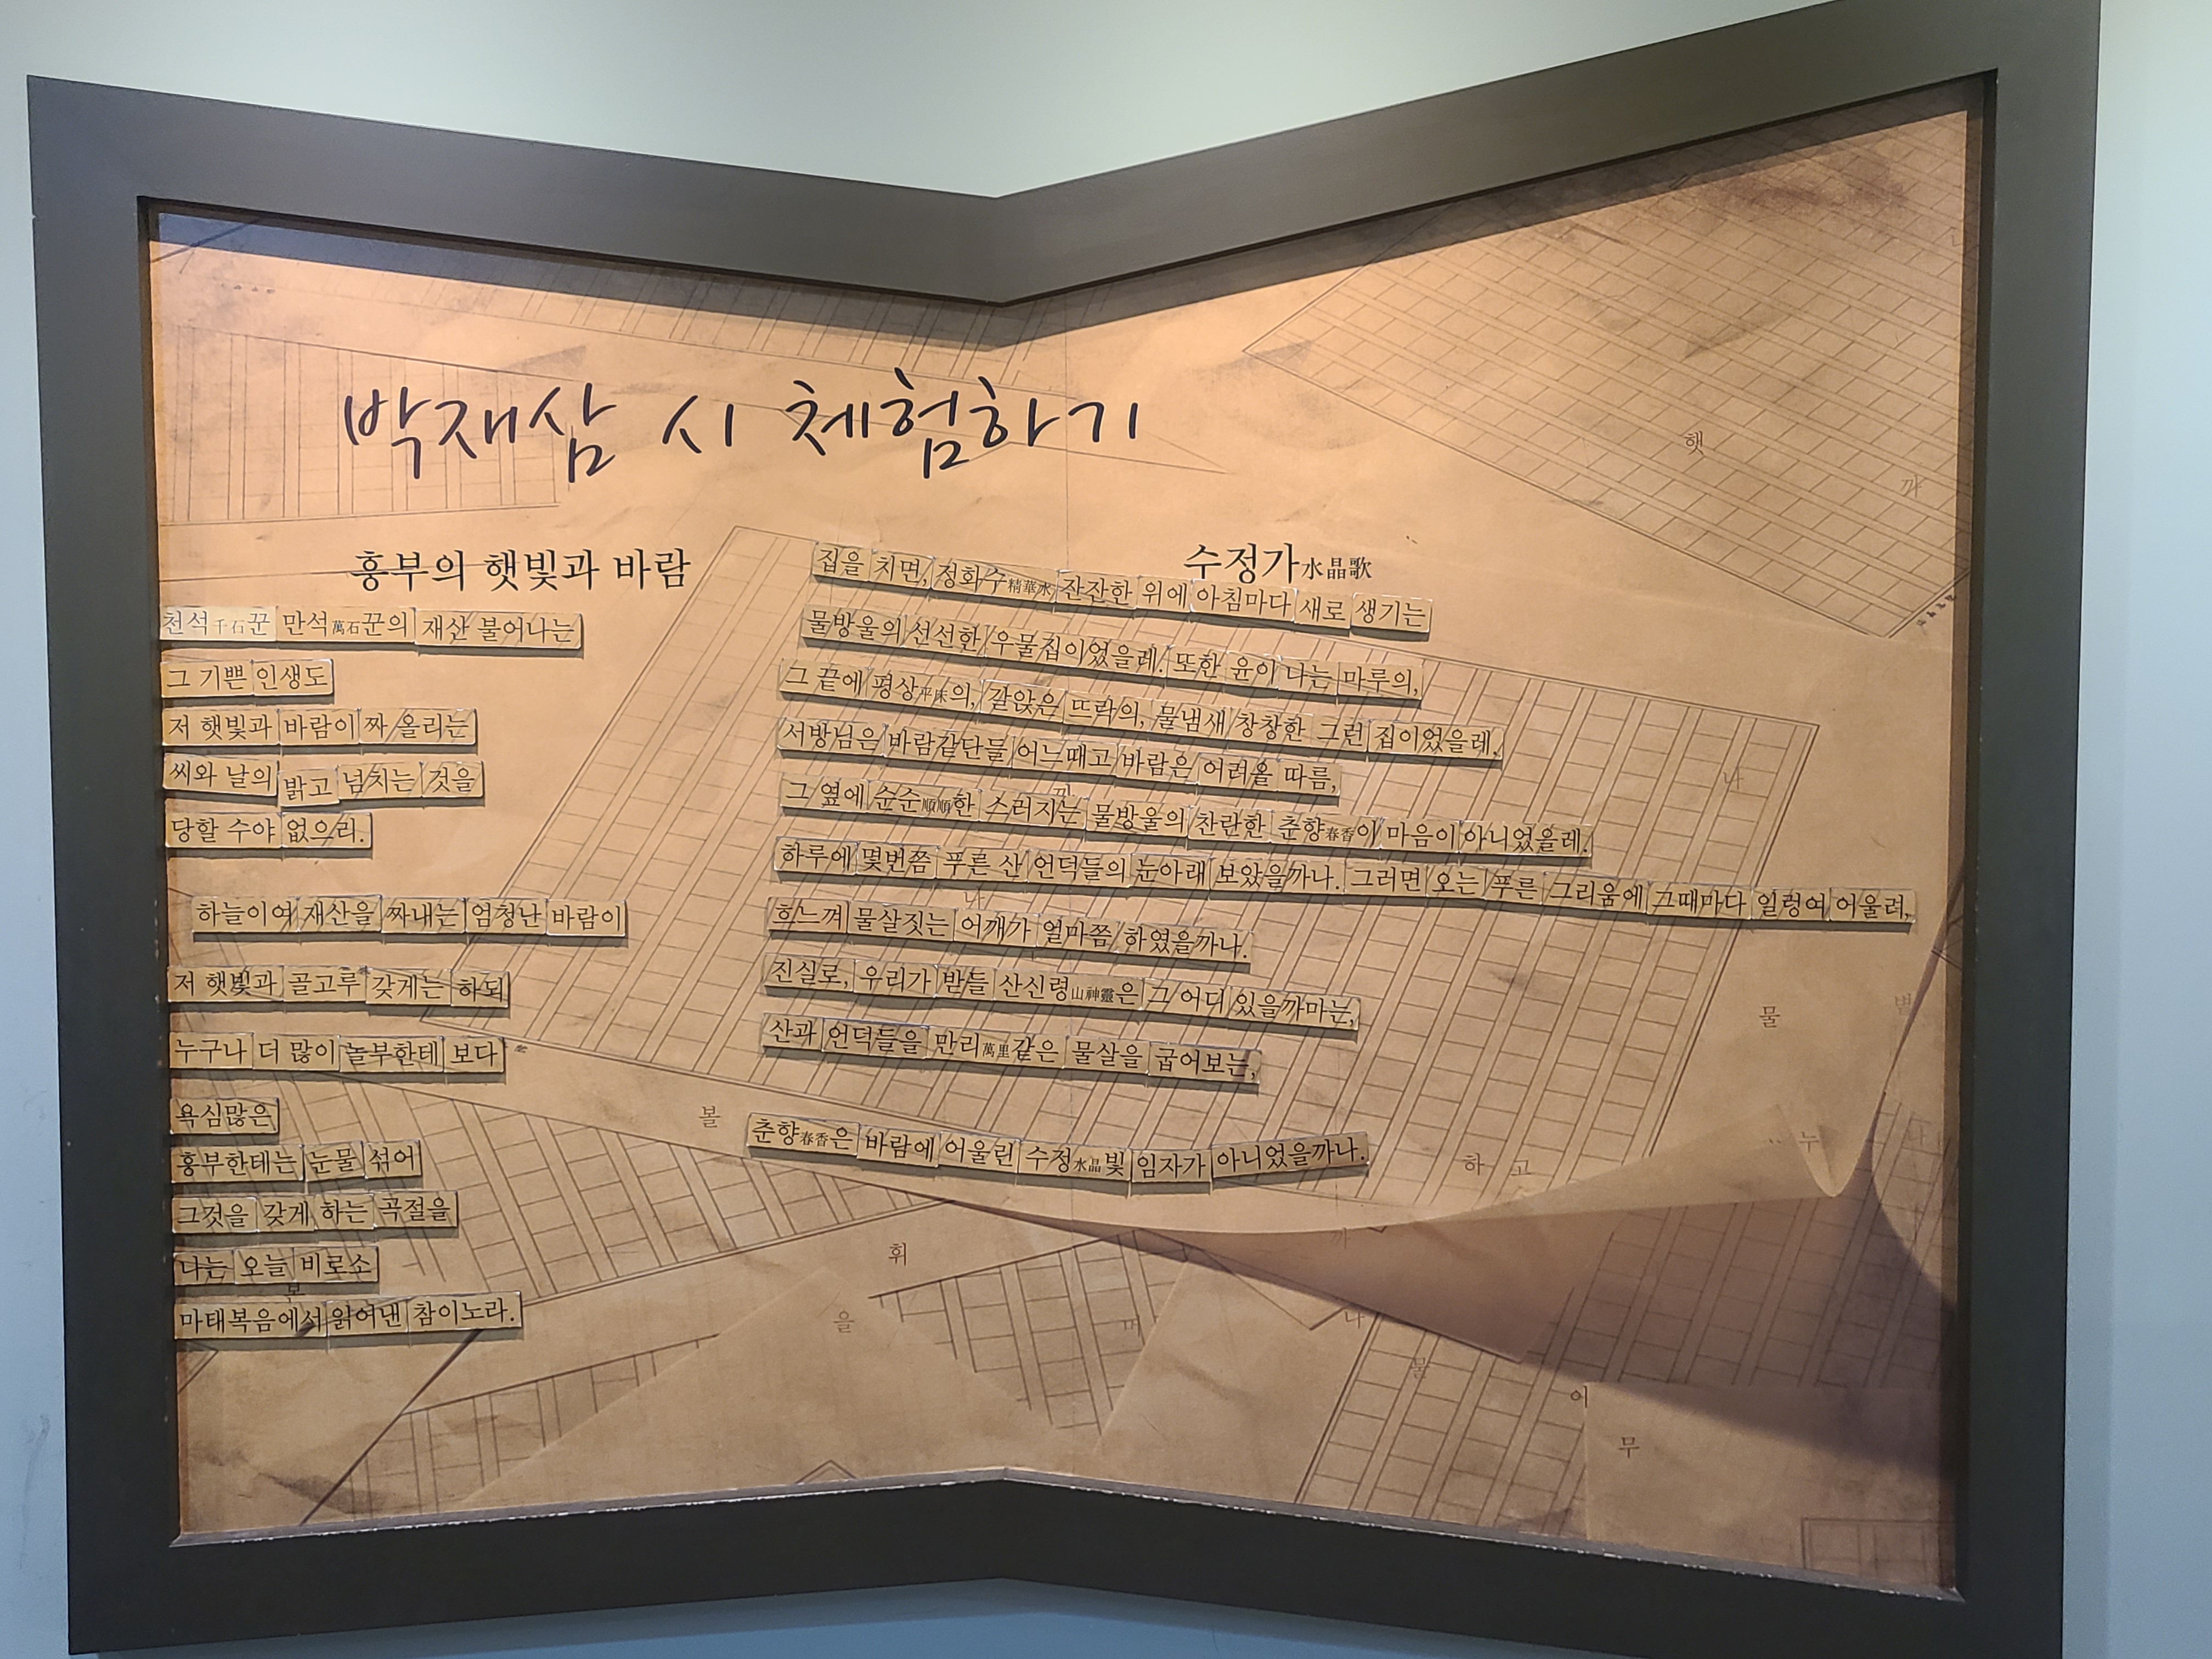 박재삼 시 체험하기
흥부의 햇빛과 바람
천석千石꾼 만석萬石꾼의 재산 불어나는
그 기쁜 인생도
저 햇빛과 바람이 짜 올리는
씨와 날의 밝고 넘치는 것을
당할 수야 없으리.
하늘이여 재산을 짜내는 엄청난 바람이
저 햇빛과 골고루 갖게는 하되
누구나 더 많이 놀부한테 보다
욕심많은
흥부한테는 눈물 섞어
그것을 갖게 하는 곡절을
나는 오늘 비로소
마태복음에서 읽어낸 참이노라.
수정가水晶歌
집을 치면, 정화수精華水 잔잔한 위에 아침마다 새로 생기는
물방울의 선선한 우물집이었을레. 또한 윤이 나는 마루의,
그 끝에 평상平床의, 갈앉은 뜨락의, 물냄새 창창한 그런 집이었을레.
서방님은 바람같단들 어느때고 바람은 어려올 따름,
그 옆에 순순順順한 스러지는 물방울의 찬란한 춘향春香이 마음이 아니었을레.
하루에 몇번쯤 푸른 산 언덕들의 눈아래 보았을까나. 그러면 오는 푸른 그리움에 그때마다 일렁여 어울려,
흐느껴 물살짓는 어깨가 얼마쯤 하였을까나.
진실로, 우리가 받들 산신령山神靈은 그 어디 있을까마는,
산과 언덕들을 만리萬里같은 물살을 굽어보는,
춘향春香은 바람에 어울린 수정水晶빛 임자가 아니었을까나.
햇
까
나
물
볼
하 고
누
휘
을
나
물
어
무